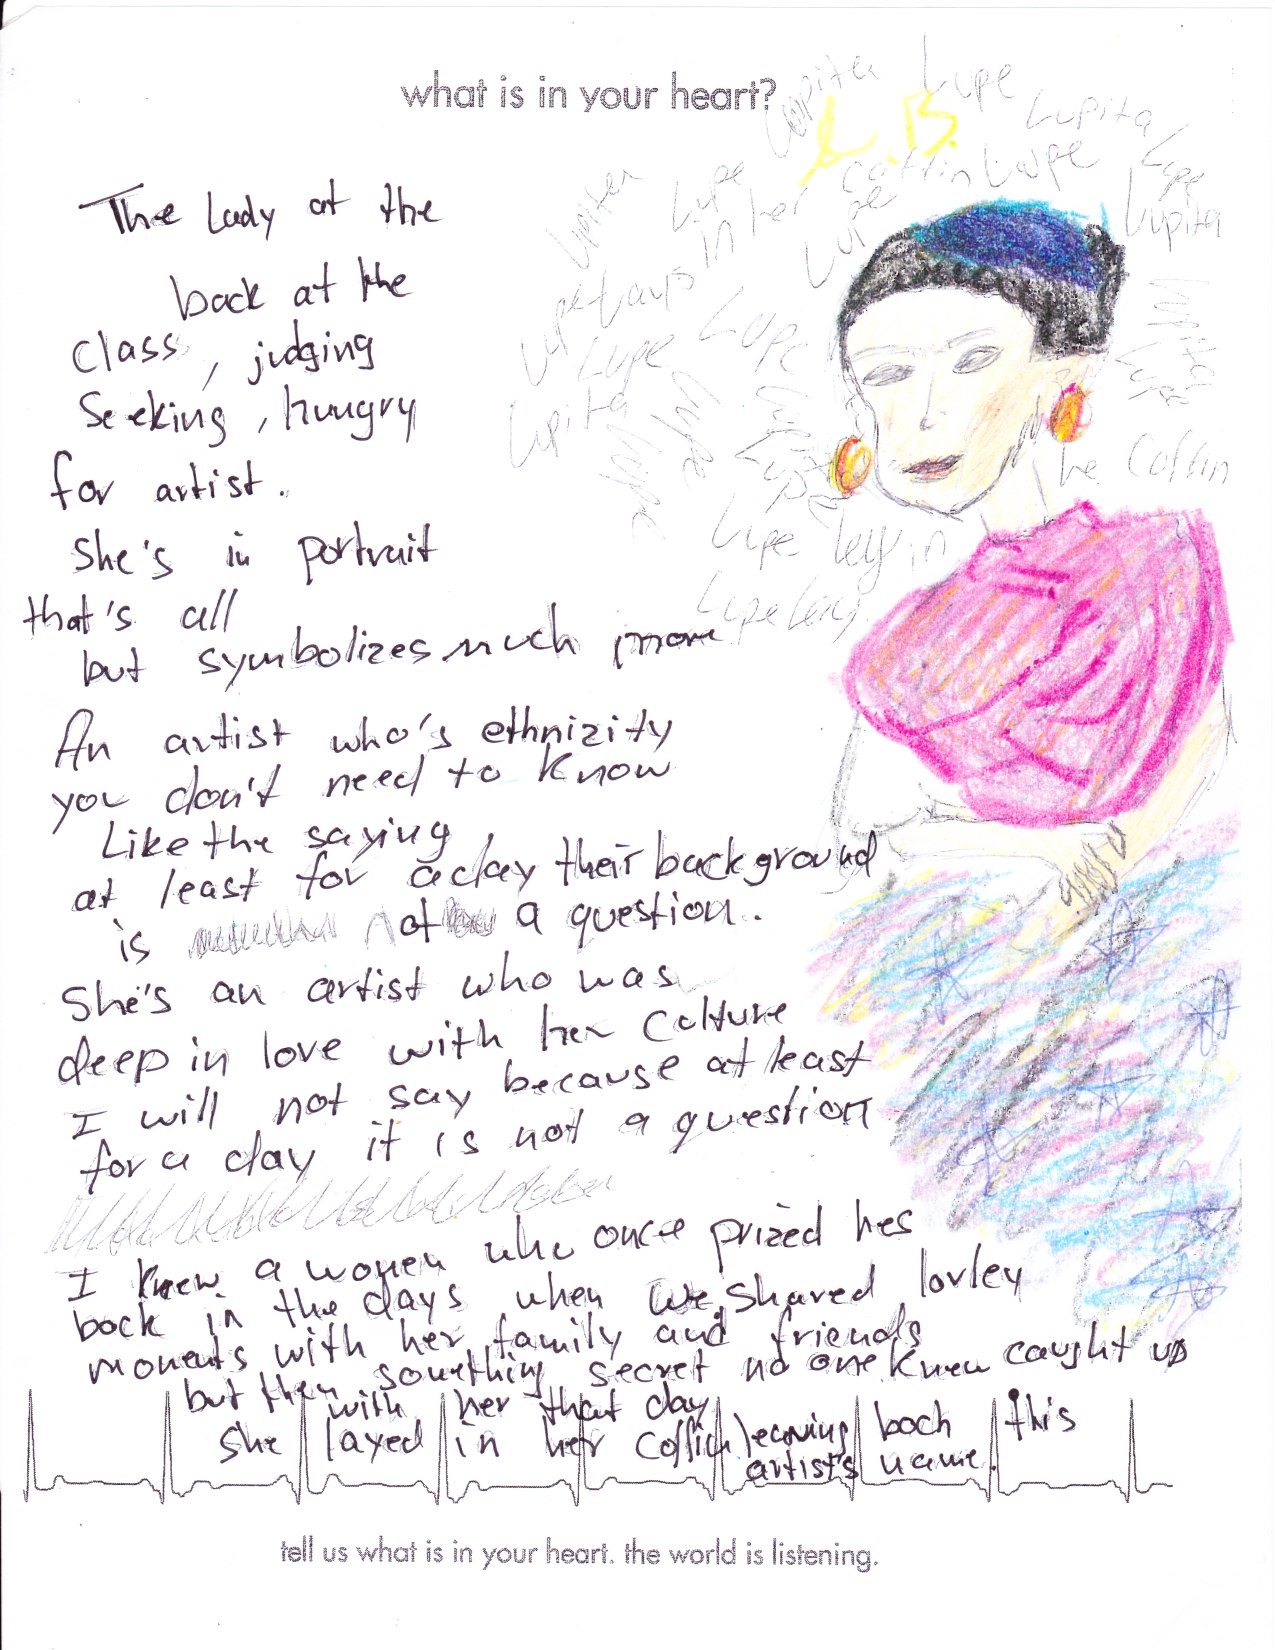 what is in your heart?
Lupita Lupe Lupita
L. B.
Lupe coffin Lupe Lupe
Lupita in her Lupe Lupita
Lupe Lays Lupe Lupita
Lupe Lupe
Lupita Lupe Lupe
Lupe coffin
Lupe ley in
Lupe Ley
The Lady at the
back at the
Class, judging
Seeking, hungry
for artist.
She's in portrait
that's all
but symbolizes much more
An artist who's ethnizity
you don't need to know
Like the saying
at least for a day their background
is not a question.
She's an artist who was
deep in love with her Culture
I will not say because at least
for a day it is not a question
I knew a women who once prized hes
back in the days when we shared lovley
moments with her family and friends
but then something secret no one knew caught up
with her that day
She layed in her coffin leaving back this
artist's name.
tell us what is in your heart. the world is listening.